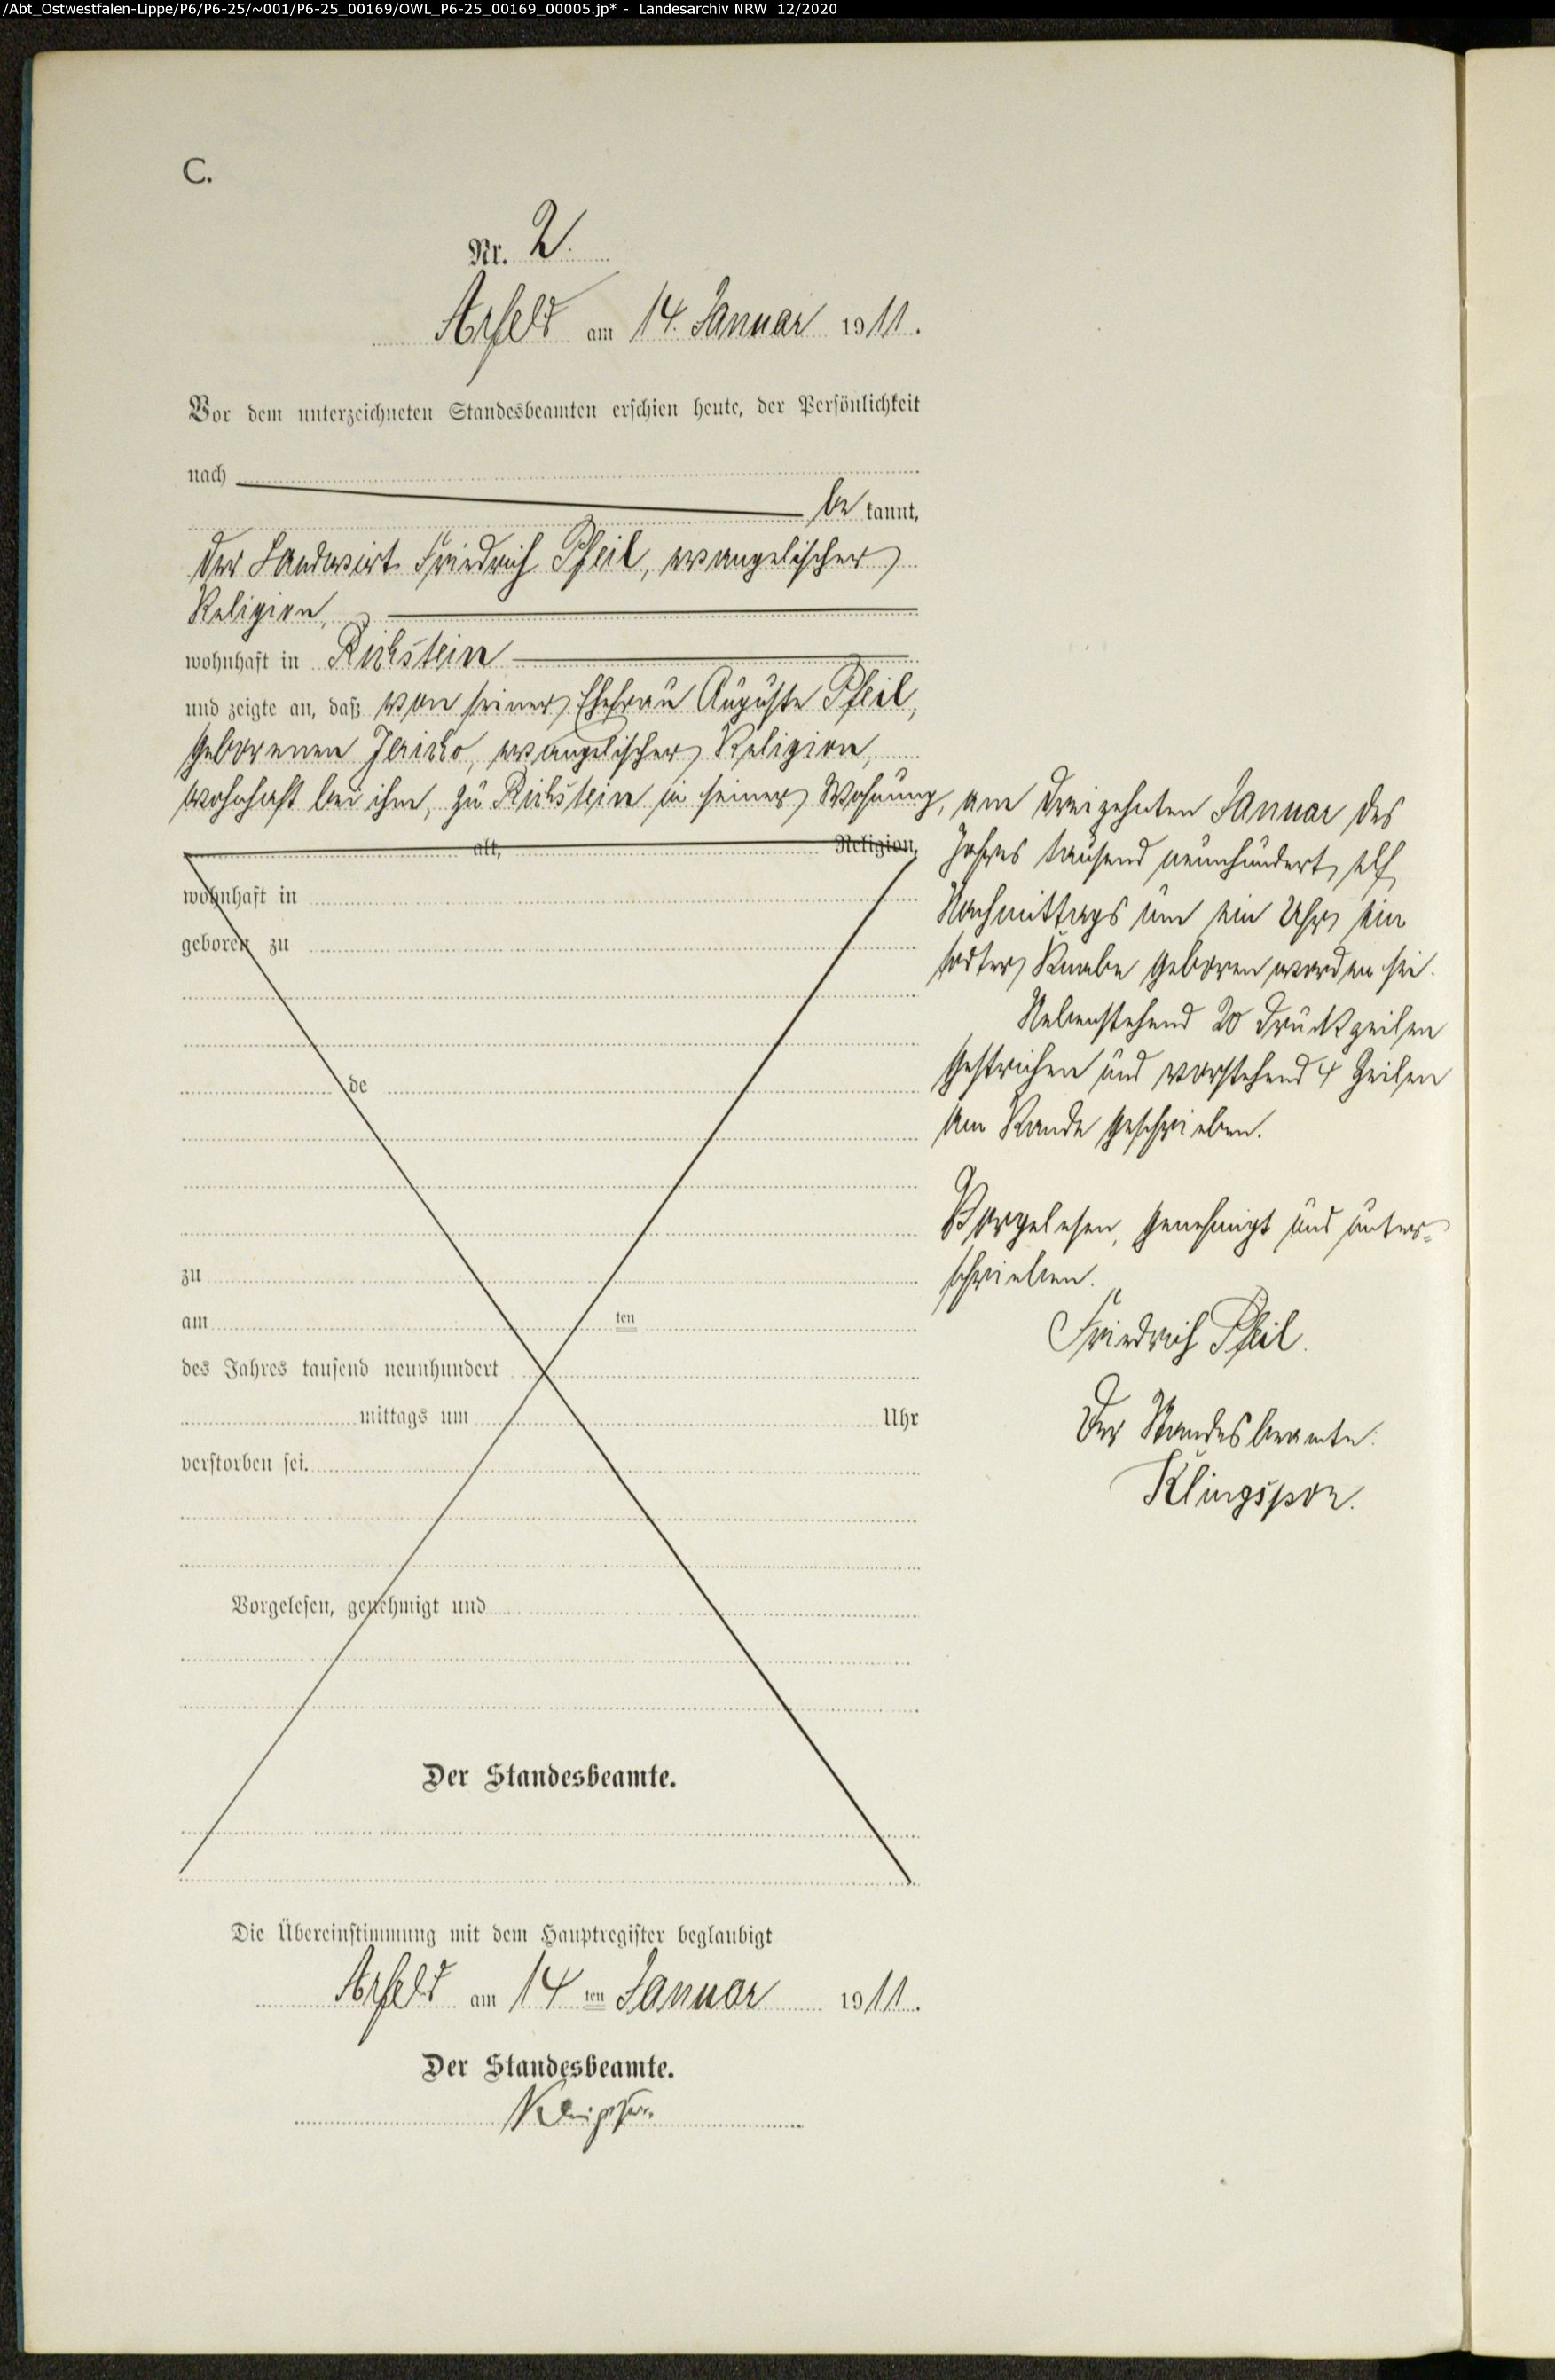 /Abt_Ostwestfalen-Lippe/P6/P6-25/~001/P6-25_00169/OWL_P6-25_00169_00005.jp* - Landesarchiv NRW 12/2020
C.
Nr. 2.
Arfeld am 14. Januar 1911.
Vor dem unterzeichneten Standesbeamten erschien heute, der Persönlichkeit
nach
be kannt,
der Landwirt Friedrich Pfeil, evangelischer
Religion,
wohnhaft in Richstein
und zeigte an, daß von seiner Ehefrau Auguste Pfeil,
geborenen Jericho, evangelischer Religion,
wohnhaft bei ihm, zu Richstein in seiner Wohnung, am dreizehnten Januar des
Jahres tausend neunhundert elf
Nachmittags um ein Uhr ein
todter Knabe geboren worden sei.
Nebenstehend 20 Druckzeilen
gestrichen und vorstehend 4 Zeilen
am Rande geschrieben.
Vorgelesen, genehmigt und unter-
schrieben.
Friedrich Pfeil.
Der Standesbeamte:
Klingspor.
alt, Religion,
wohnhaft in
geboren zu
de
zu
am ten
des Jahres tausend neunhundert
mittags um Uhr
verstorben sei.
Vorgelesen, genehmigt und
Der Standesbeamte.
Die Übereinstimmung mit dem Hauptregister beglaubigt
Arfeld am 14 ten Januar 1911.
Der Standesbeamte.
Klingspor